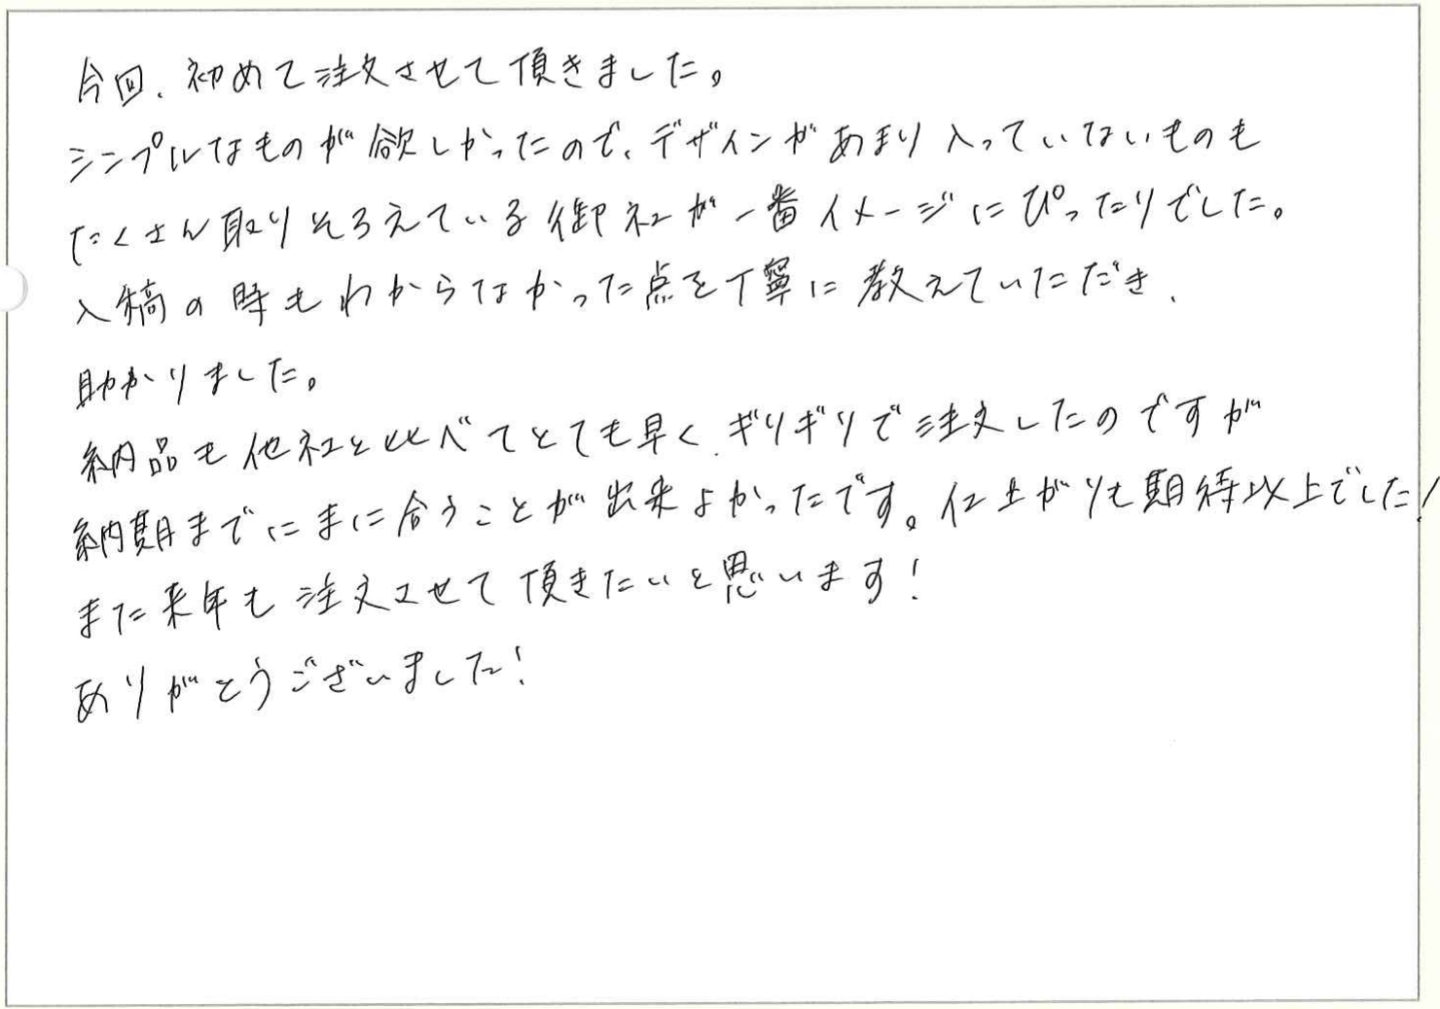 今回、初めて注文させて頂きました。
シンプルなものが欲しかったので、デザインがあまり入っていないものも
たくさん取りそろえている御社が一番イメージにぴったりでした。
入稿の時もわからなかった点を丁寧に教えていただき、
助かりました。
納品も他社と比べてとても早く、ギリギリで注文したのですが
納期までにまに合うことが出来よかったです。仕上がりも期待以上でした!
また来年も注文させて頂きたいと思います!
ありがとうございました!